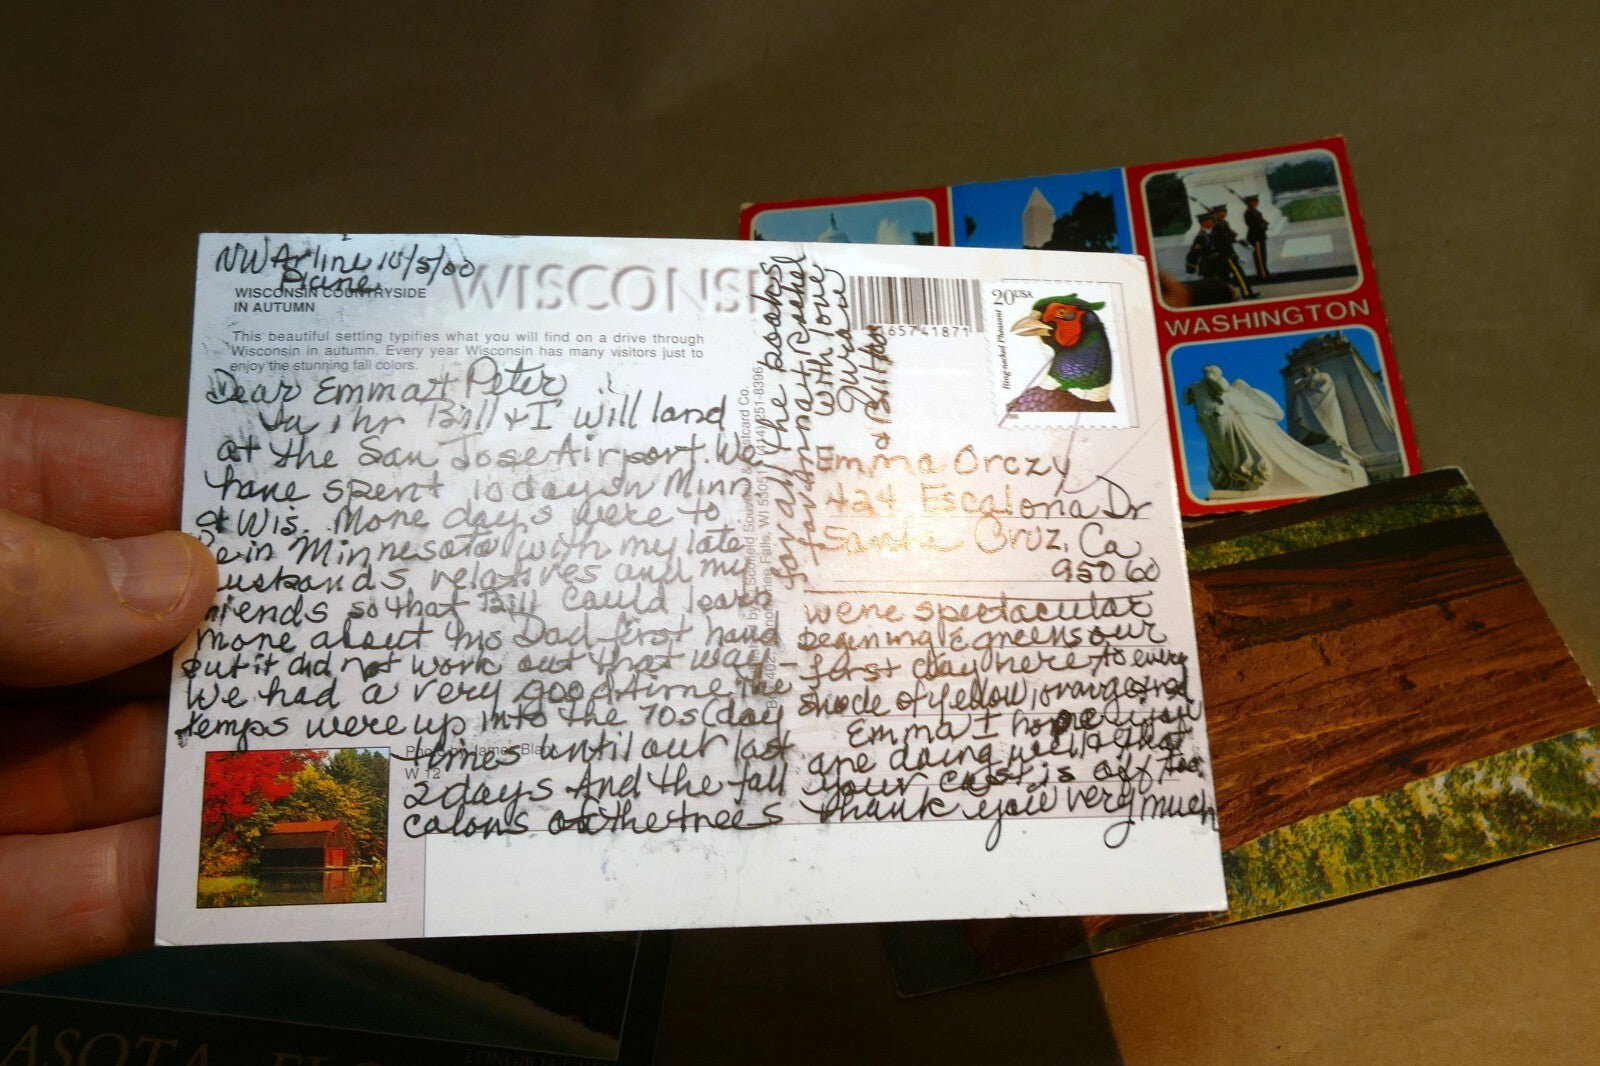 NW Airline 10/5/00
Plane
WISCONSIN
WISCONSIN COUNTRYSIDE
IN AUTUMN
This beautiful setting typifies what you will find on a drive through
Wisconsin in autumn. Every year Wisconsin has many visitors just to
enjoy the stunning fall colors.
Dear Emma & Peter
In 1 hr Bill & I will land
at the San Jose Airport. We
have spent 10 days in Minn
& Wis. More days were to
be in Minnesota with my late
husbands relatives and my
friends so that Bill could learn
more about his Dad first hand
but it did not work out that way -
We had a very good time. The
temps were up into the 70s (day
times until our last
2 days. And the fall
colors of the trees
were spectacular
begenning & greens our
first day here to every
shade of yellow, orange & red
Emma I hope you
are doing well & that
your cast is off too.
Thank you very much
for all the books
for Rachel
With love
& Bill too
Photo by James Blank
W 12
65741871
20USA
Ring-necked Pheasant
Emma Orczy
424 Escalona Dr
Santa Cruz, Ca
95060
WASHINGTON